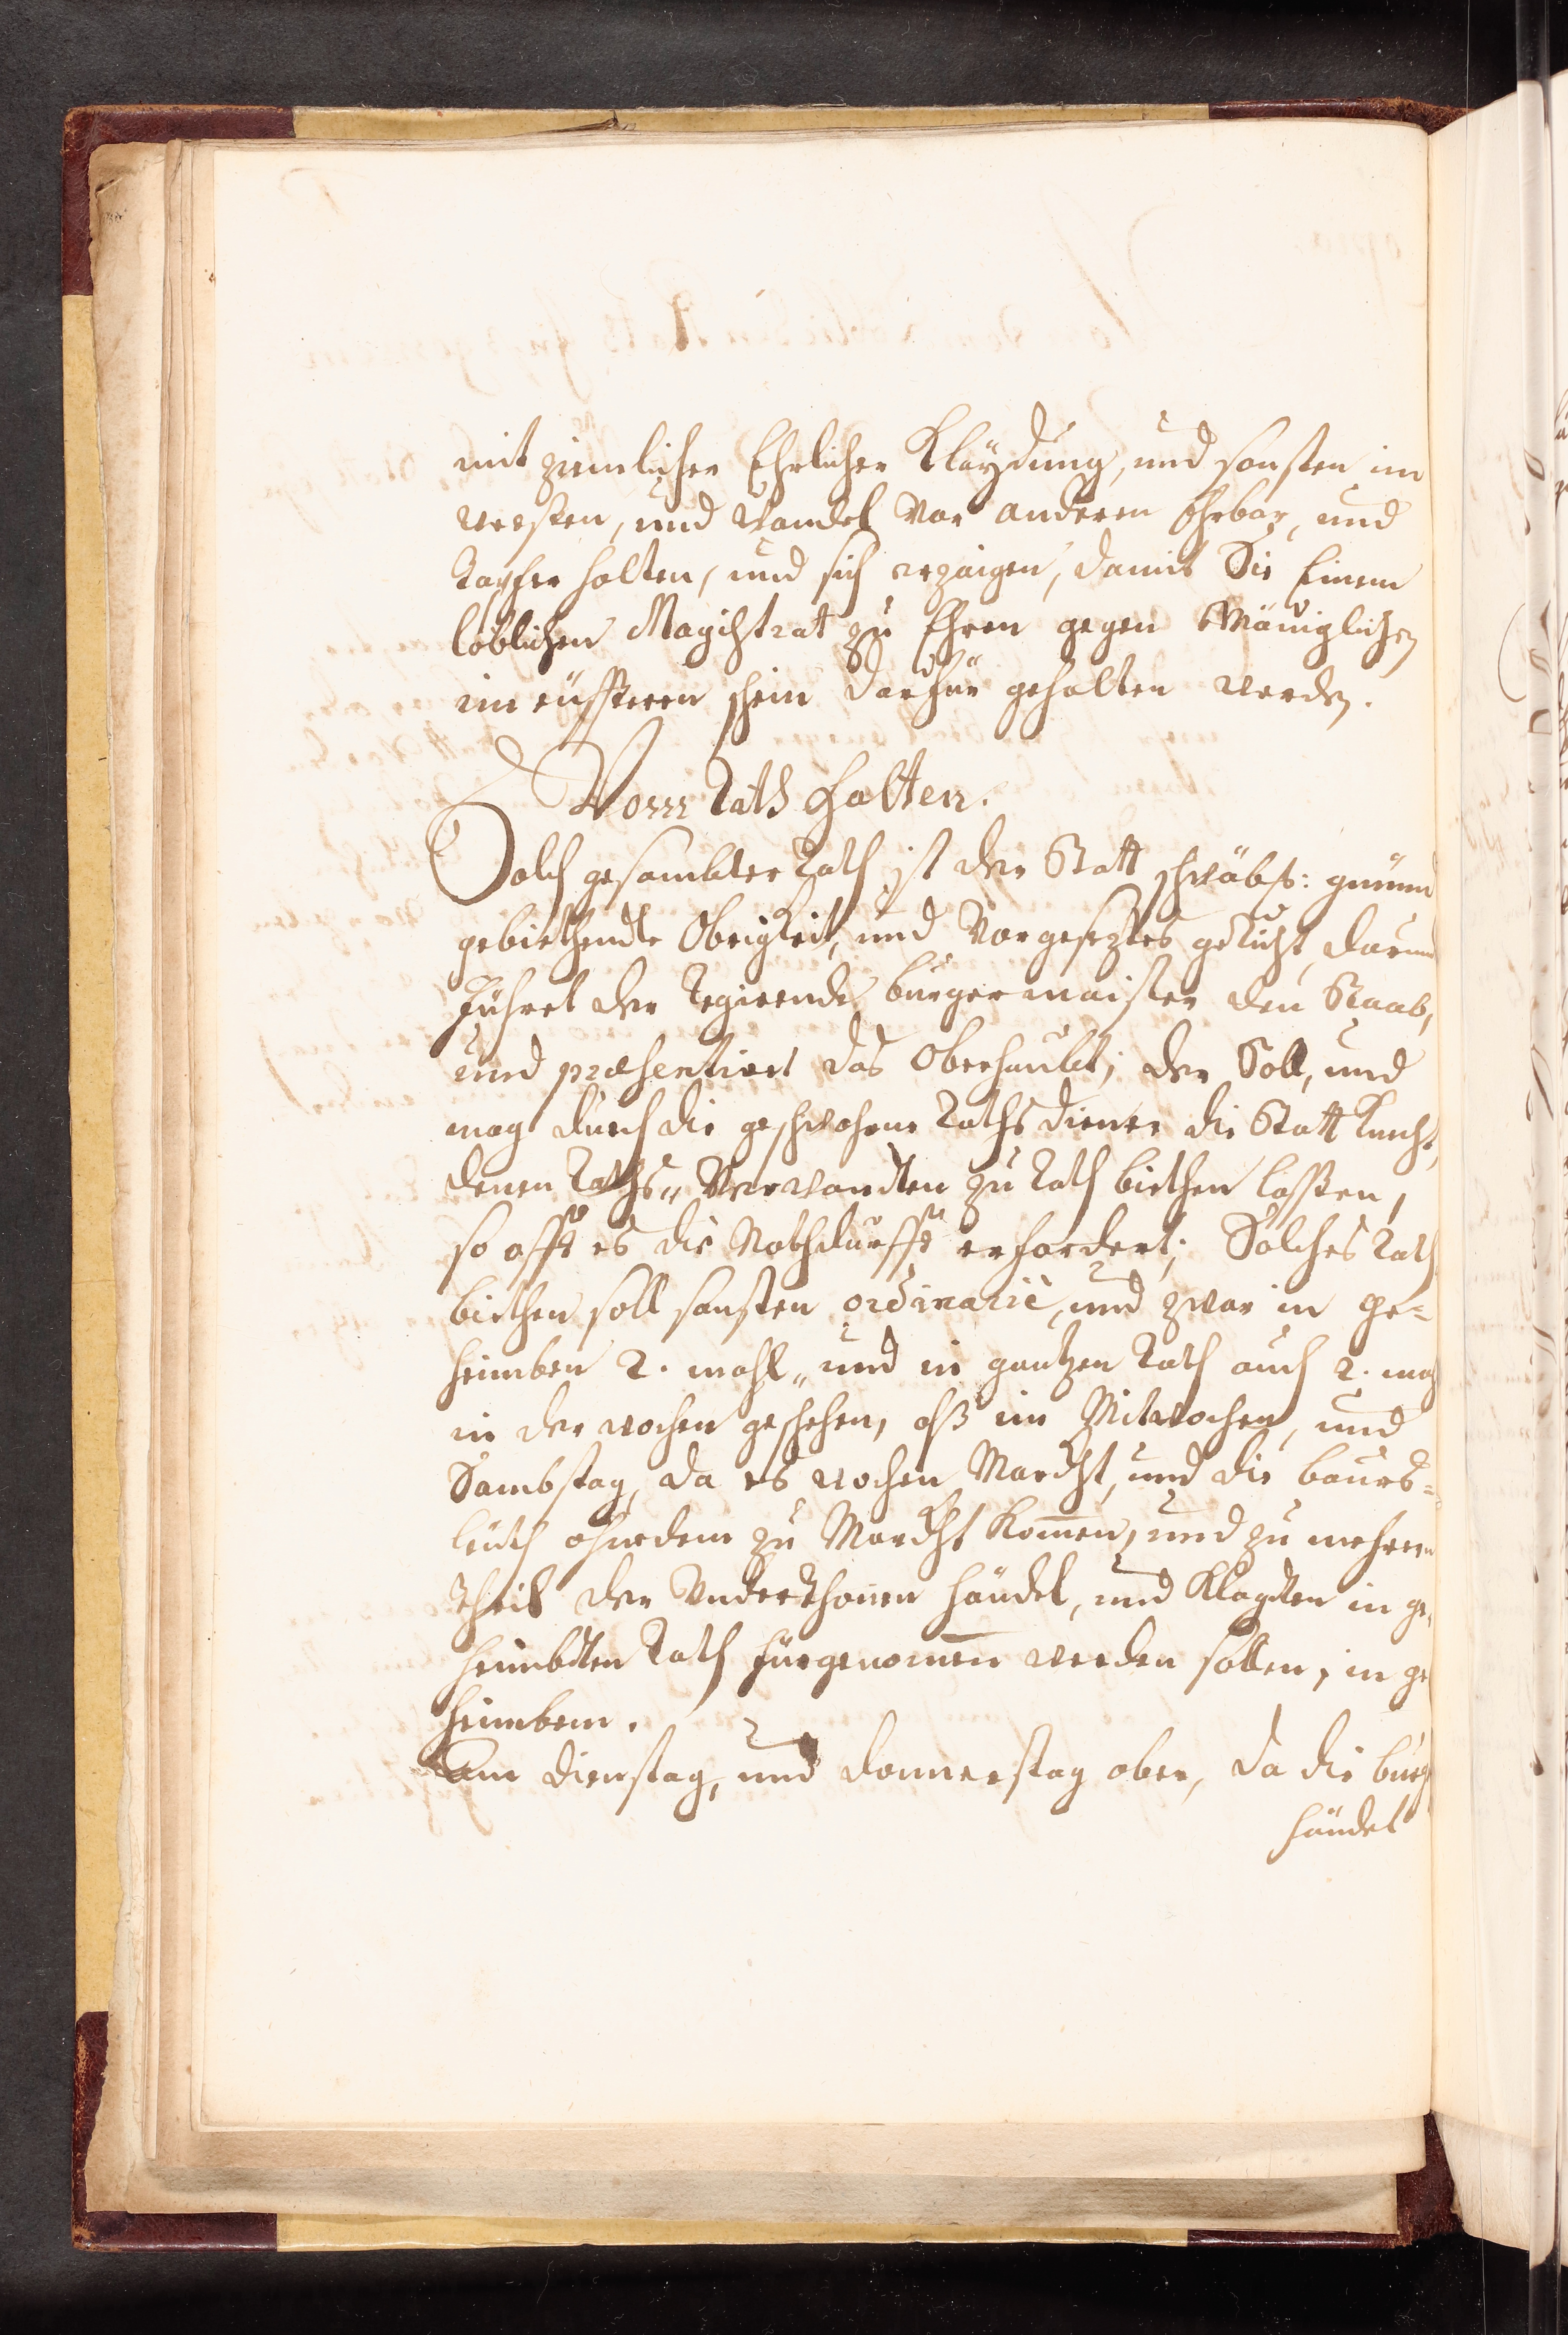 mit ziemlicher Ehrlicher Klaÿdung, und sonsten im
weesen, und Wandel vor anderen Ehrbar, und
tapfer halten, und sich erzaigen, damit Sie Einem
löblichen Magistrat zu Ehren gegen Mäniglichen
im eüsseren schein darfür gehalten werden.
Vom Rath halten.
Solch gesambter Rath ist der Statt schwäbs: gmünd
gebiethendte Obrigkeit, und Vorgeseztes gericht, darinn
führet der Regierende burgermaister den Staab,
und præsentiret das Oberhaubt; der Soll, und
mag durch die geschwohrne Rathsdiener die Statt Knecht,
denen Raths„ Verwandten zu Rath biethen lassen,
so offt es die Nothdurfft erfordert; Solches Rath
biethen soll sonsten ordinariè, und zwar in ge-
heimben 2. mahl„ und in gantzen Rath auch 2. mahl
in der wochen geschehen, alß im Mitwochen, und
Sambstag, da es wochen Marckht, und die baurs-
leüth ohnedem zu Marckht komen, und zu mehrern
theil der Underthonen händel, und Klagden in ge
heimbden Rath fürgenomen werden sollen, in ge
heimbem.
Am Dienstag, und Donnerstag aber, da die burger
händel